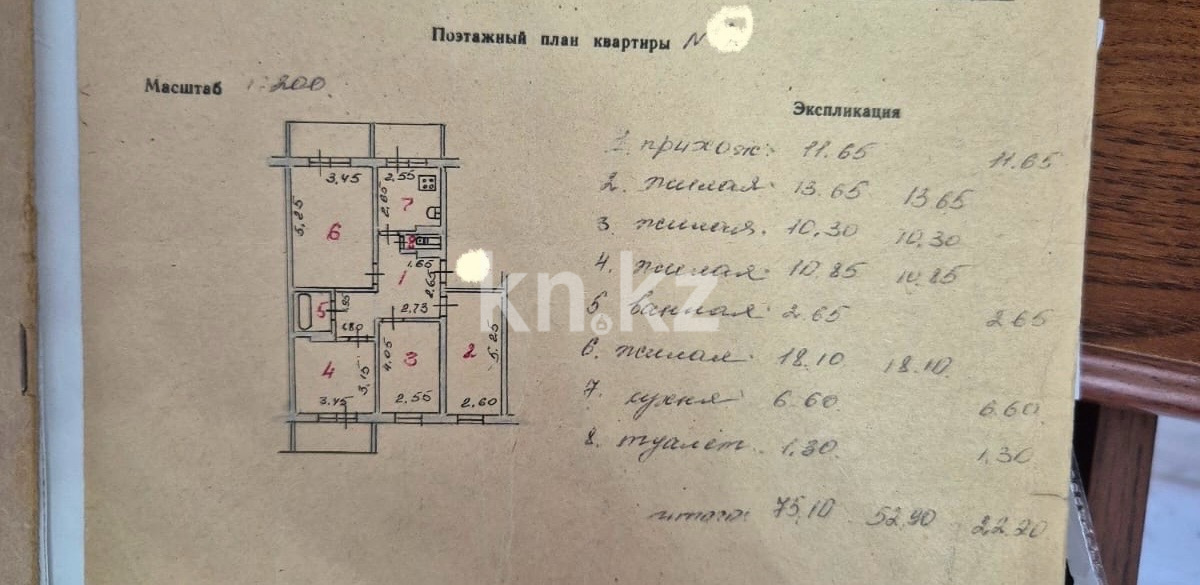 Поэтажный план квартиры N
Масштаб 1:200
Экспликация
1. прихож: 11.65 11.65
2. жилая: 13.65 13.65
3. жилая. 10.30 10.30
4. жилая: 10.85 10.85
5 ванная: 2.65 2.65
6. жилая: 18.10 18.10
7. кухня 6.60 6.60
8. туалет. 1.30 1.30
итого: 75.10 52.90 22.20
3,45 2,55
5,25 2,85 7
6
8
1,65
1 2,65
5 2,73
1,80
4 3 2
4,05 5,25
3,15
3,45 2,55 2,60
kn.kz